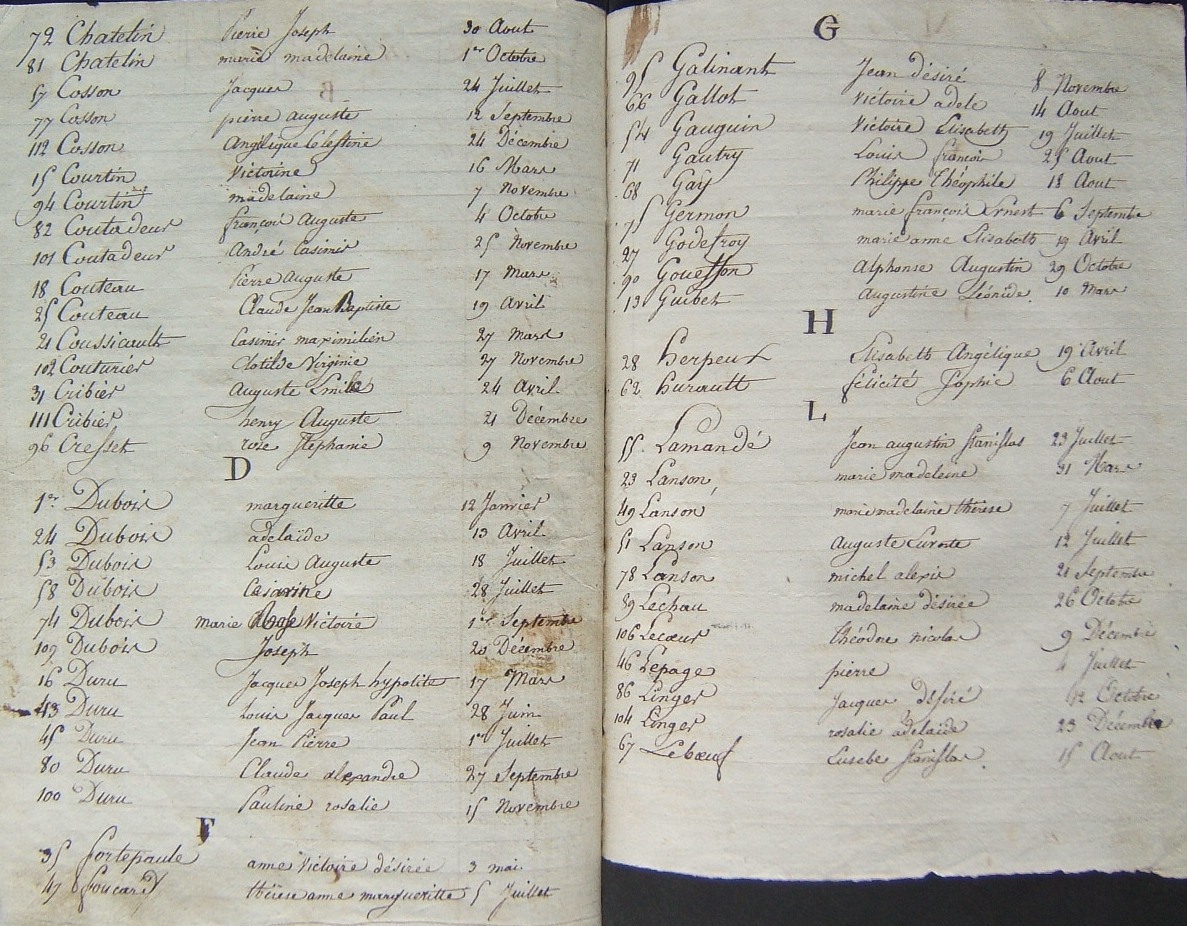 72 Chatelin Pierre Joseph 30 Aout
81 Chatelin marie madelaine 1er Octobre
57 Cosson Jacques 24 Juillet
77 Cosson pierre auguste 12 Septembre
112 Cosson Angélique Célestine 24 Décembre
15 Courtin Victorine 16 Mars
94 Courtin madelaine 7 Novembre
82 Coutadeur françois Auguste 4 Octobre
101 Coutadeur André Casimir 25 Novembre
18 Couteau Pierre Auguste 17 Mars
25 Couteau Claude Jean Baptiste 19 Avril
21 Coussicault Casimir maximilien 27 Mars
102 Couturier Clotilde Virginie 27 Novembre
31 Cribier Auguste Emile 24 Avril
111 Cribier henry Auguste 21 Décembre
96 Cresset rose Stéphanie 9 Novembre
D
1er Dubois margueritte 12 Janvier
24 Dubois adelaïde 13 Avril
53 Dubois Louis Auguste 18 Juillet
58 Dubois 28 Juillet
74 Dubois marie Rose Victoire 1er Septembre
109 Dubois Joseph 20 Décembre
16 Duru Jacques Joseph hypolite 17 Mars
43 Duru Louis Jacques Paul 28 Juin
45 Duru Jean Pierre 1er Juillet
80 Duru Claude alexandre 27 Septembre
100 Duru Pauline rosalie 15 Novembre
F
35 fortepaule anne Victoire désirée 3 mai
47 foucard thérèse anne margueritte 5 Juillet
G
95 Galinant Jean désiré 8 Novembre
66 Gallot Victoire adele 14 Aout
54 Gauguin Victoire Elisabeth 19 Juillet
71 Gautry Louis françois 25 Aout
68 Gay Philippe Théophile 18 Aout
75 Germon marie françois Ernest 6 Septembre
27 Godefroy marie anne Elisabeth 19 Avril
90 Gouesson Alphonse Augustin 29 Octobre
13 Guibet Augustine Léonide 10 Mars
H
28 herpeux Elisabeth Angélique 19 Avril
62 hurault félicité Sophie 6 Aout
L
55 Lamandé Jean augustin Stanislas 23 Juillet
23 Lanson marie madeleine 31 Mars
49 Lanson marie madelaine thérese 7 Juillet
51 Lanson Auguste 12 Juillet
78 Lanson michel alexis 21 Septembre
89 Lechau madelaine désirée 26 Octobre
106 Lecœur théodore nicolas 9 Décembre
46 Lepage pierre Juillet
86 Linger Jacques désiré 12 Octobre
104 Linger rosalie adelaide 23 Décembre
67 Lebœuf Eusebe Stanislas 15 Aout